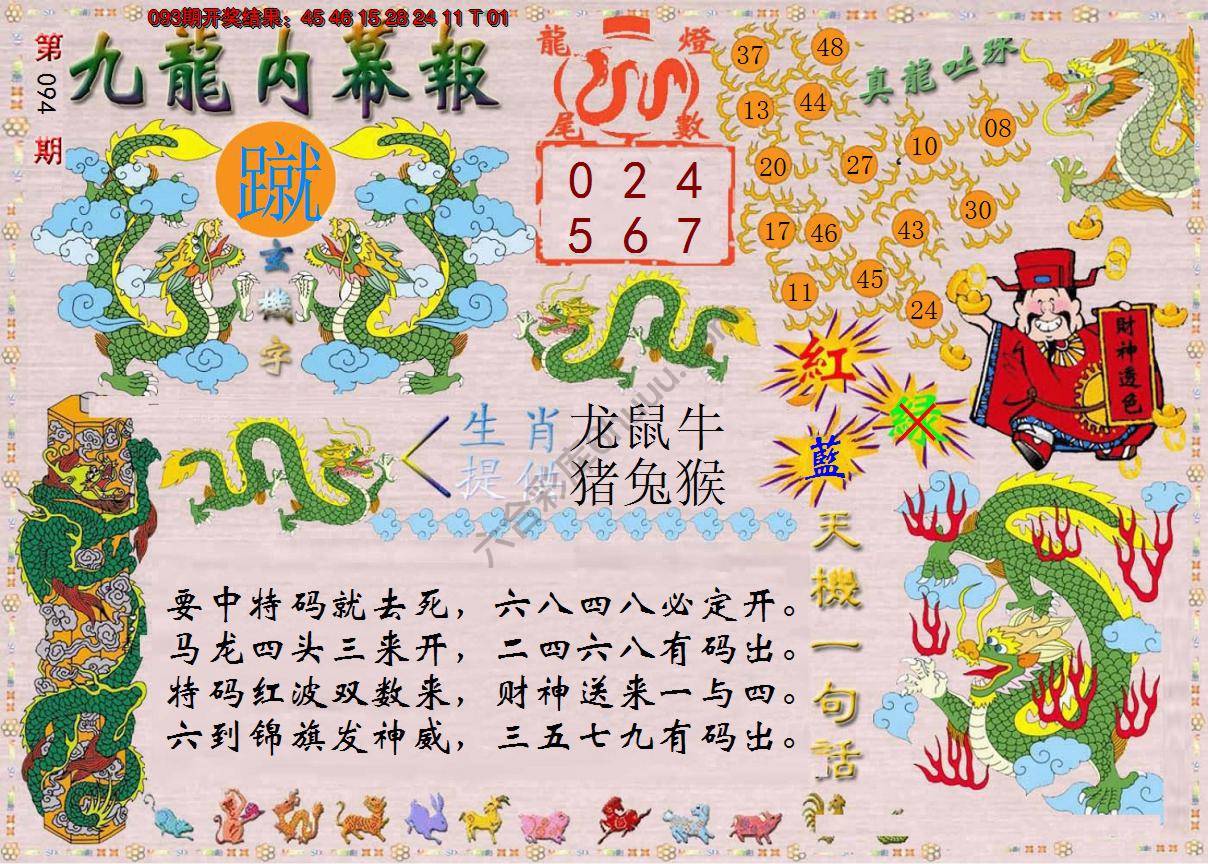 093期开奖结果：45 46 15 28 24 11 T 01
第094期
九龍内幕報
蹴
玄機字
龍燈
尾數
0 2 4
5 6 7
真龍吐珠
37 48
13 44
10 08
20 27
30
17 46 43
11 45
24
財神透色
紅
綠
藍
生肖 龙鼠牛
提供 猪兔猴
要中特码就去死，六八四八必定开。
马龙四头三来开，二四六八有码出。
特码红波双数来，财神送来一与四。
六到锦旗发神威，三五七九有码出。
天機一句話